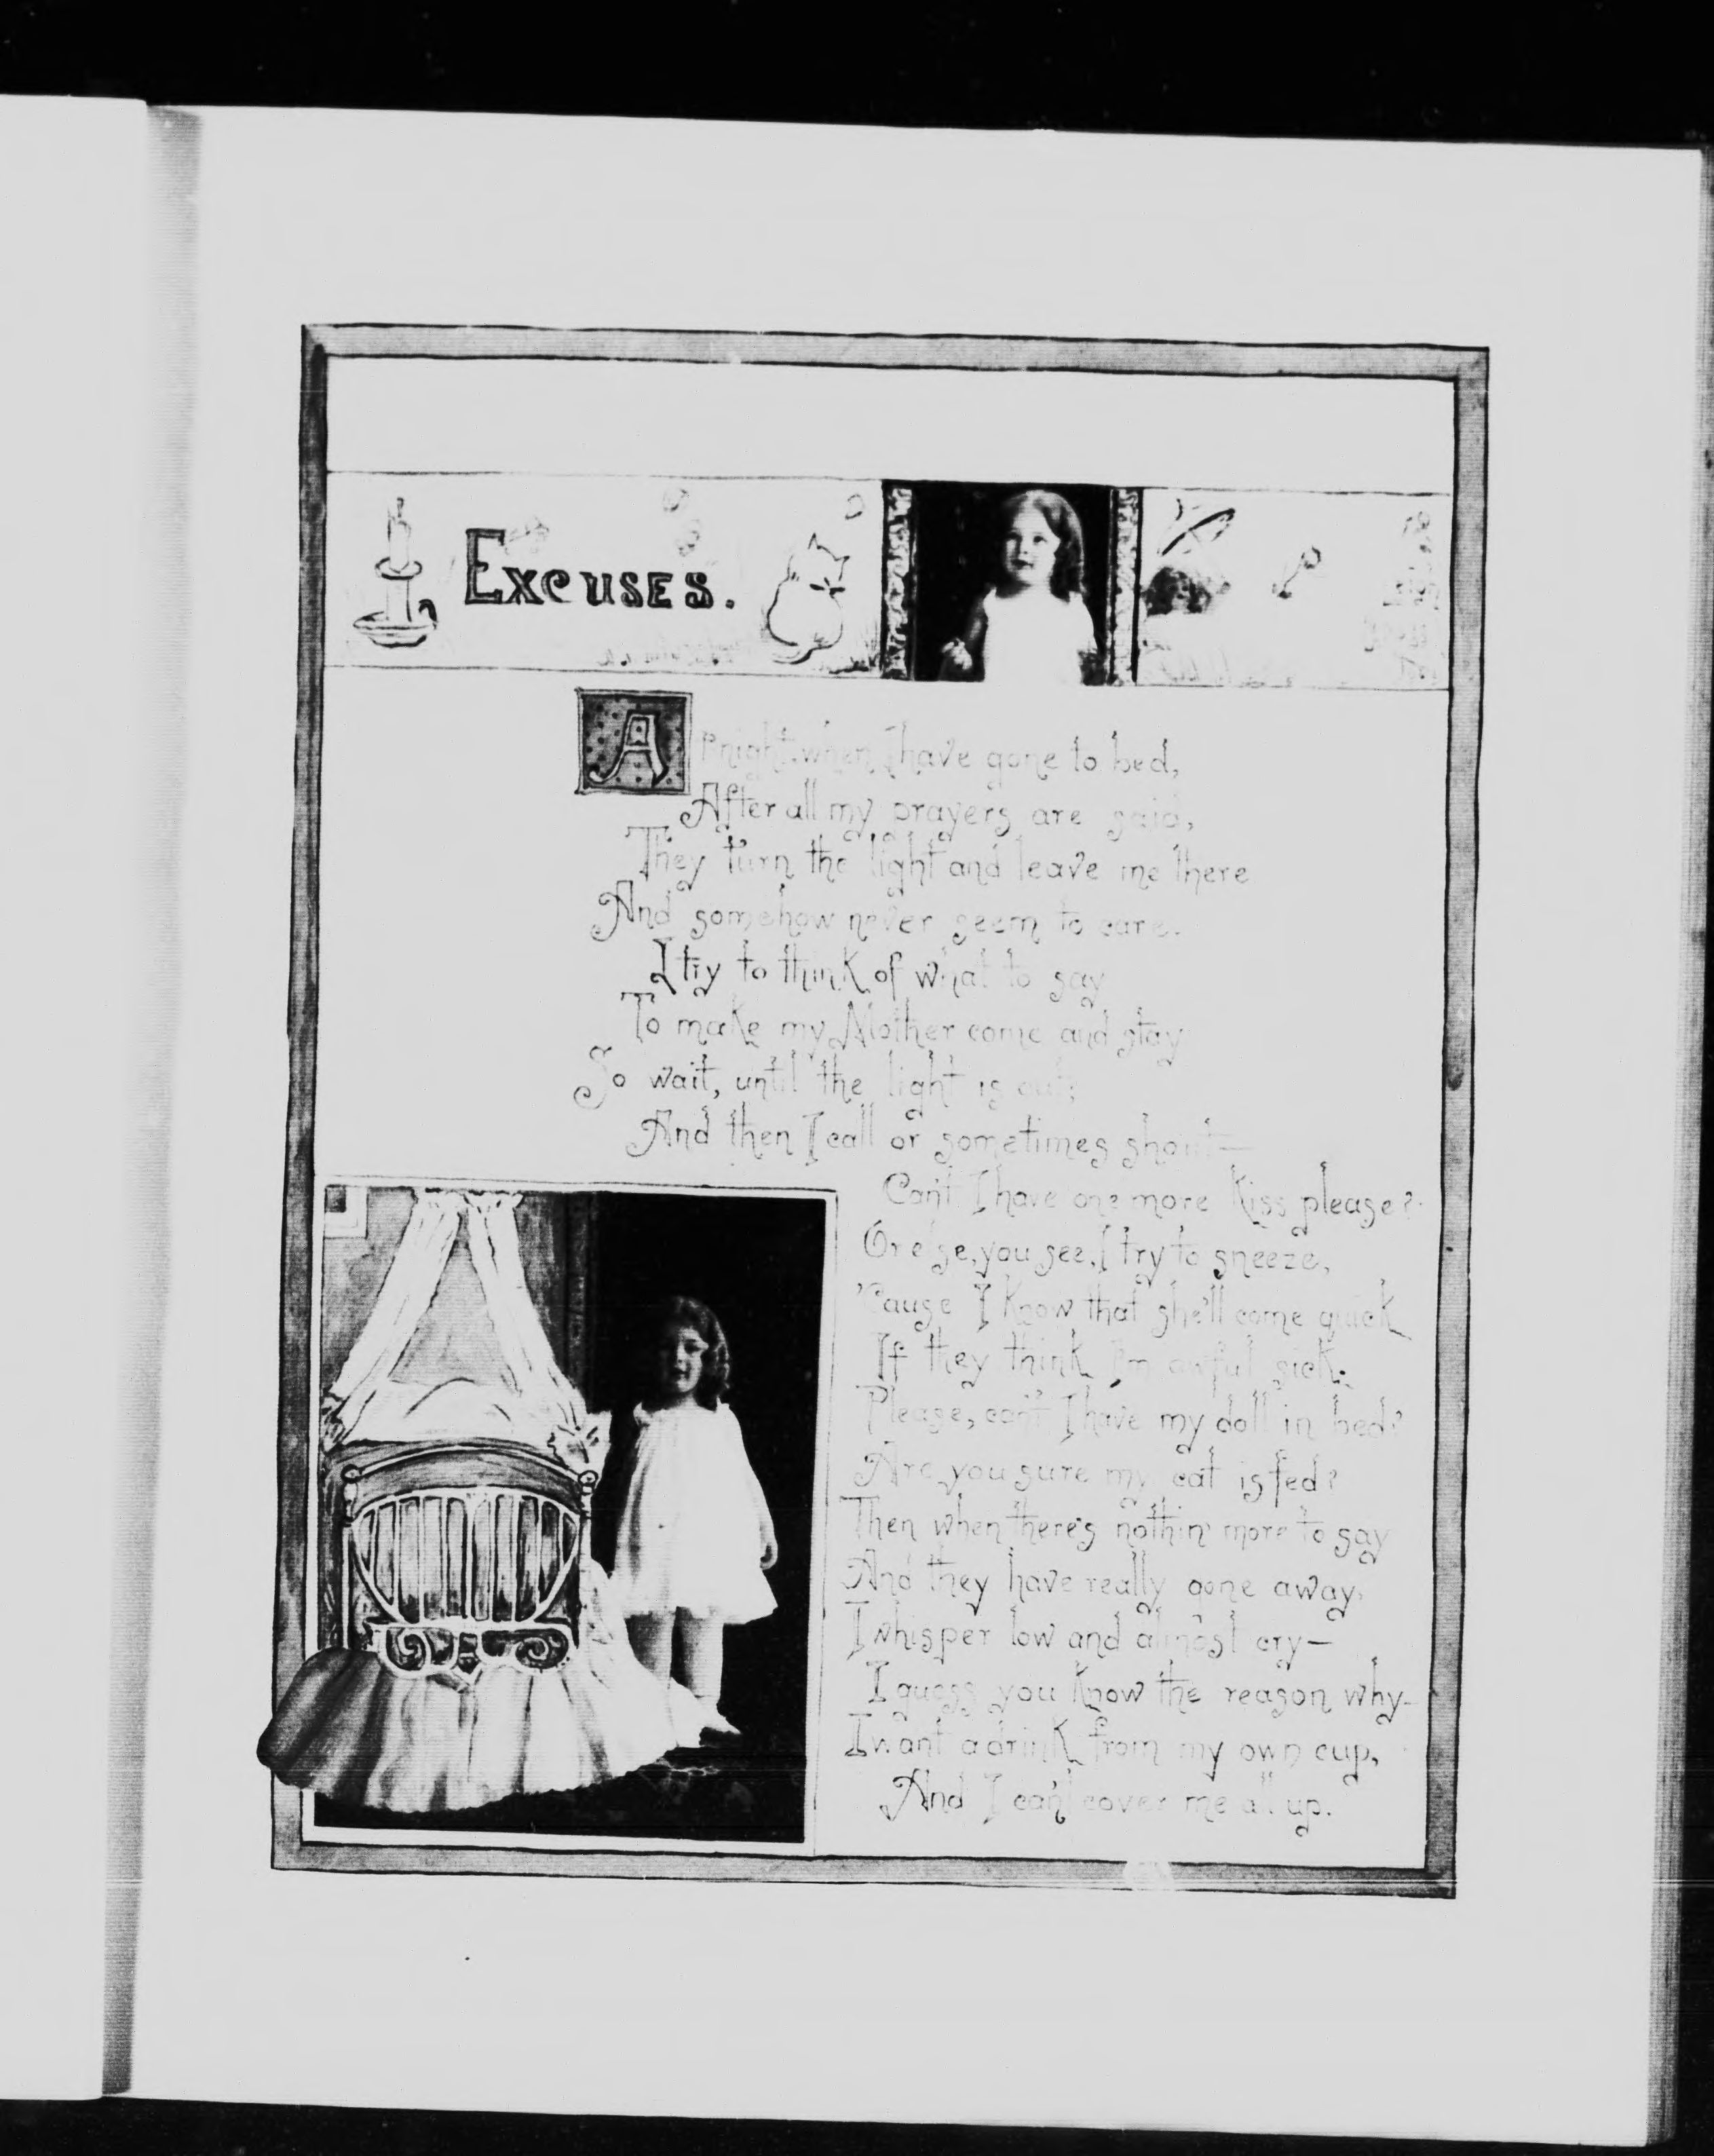 Excuses.
At night, when I have gone to bed,
After all my prayers are said,
They turn the light and leave me there
And somehow never seem to care.
I try to think of what to say
To make my Mother come and stay
So wait, until the light is out;
And then I call or sometimes shout—
Can't I have one more kiss please?
Or else, you see, I try to sneeze,
'Cause I know that she'll come quick
If they think I'm awful sick.
Please, can't I have my doll in bed?
Are you sure my cat is fed?
Then when there's nothin' more to say
And they have really gone away,
I whisper low and almost cry—
I guess you know the reason why—
I want a drink from my own cup,
And I can't cover me all up.